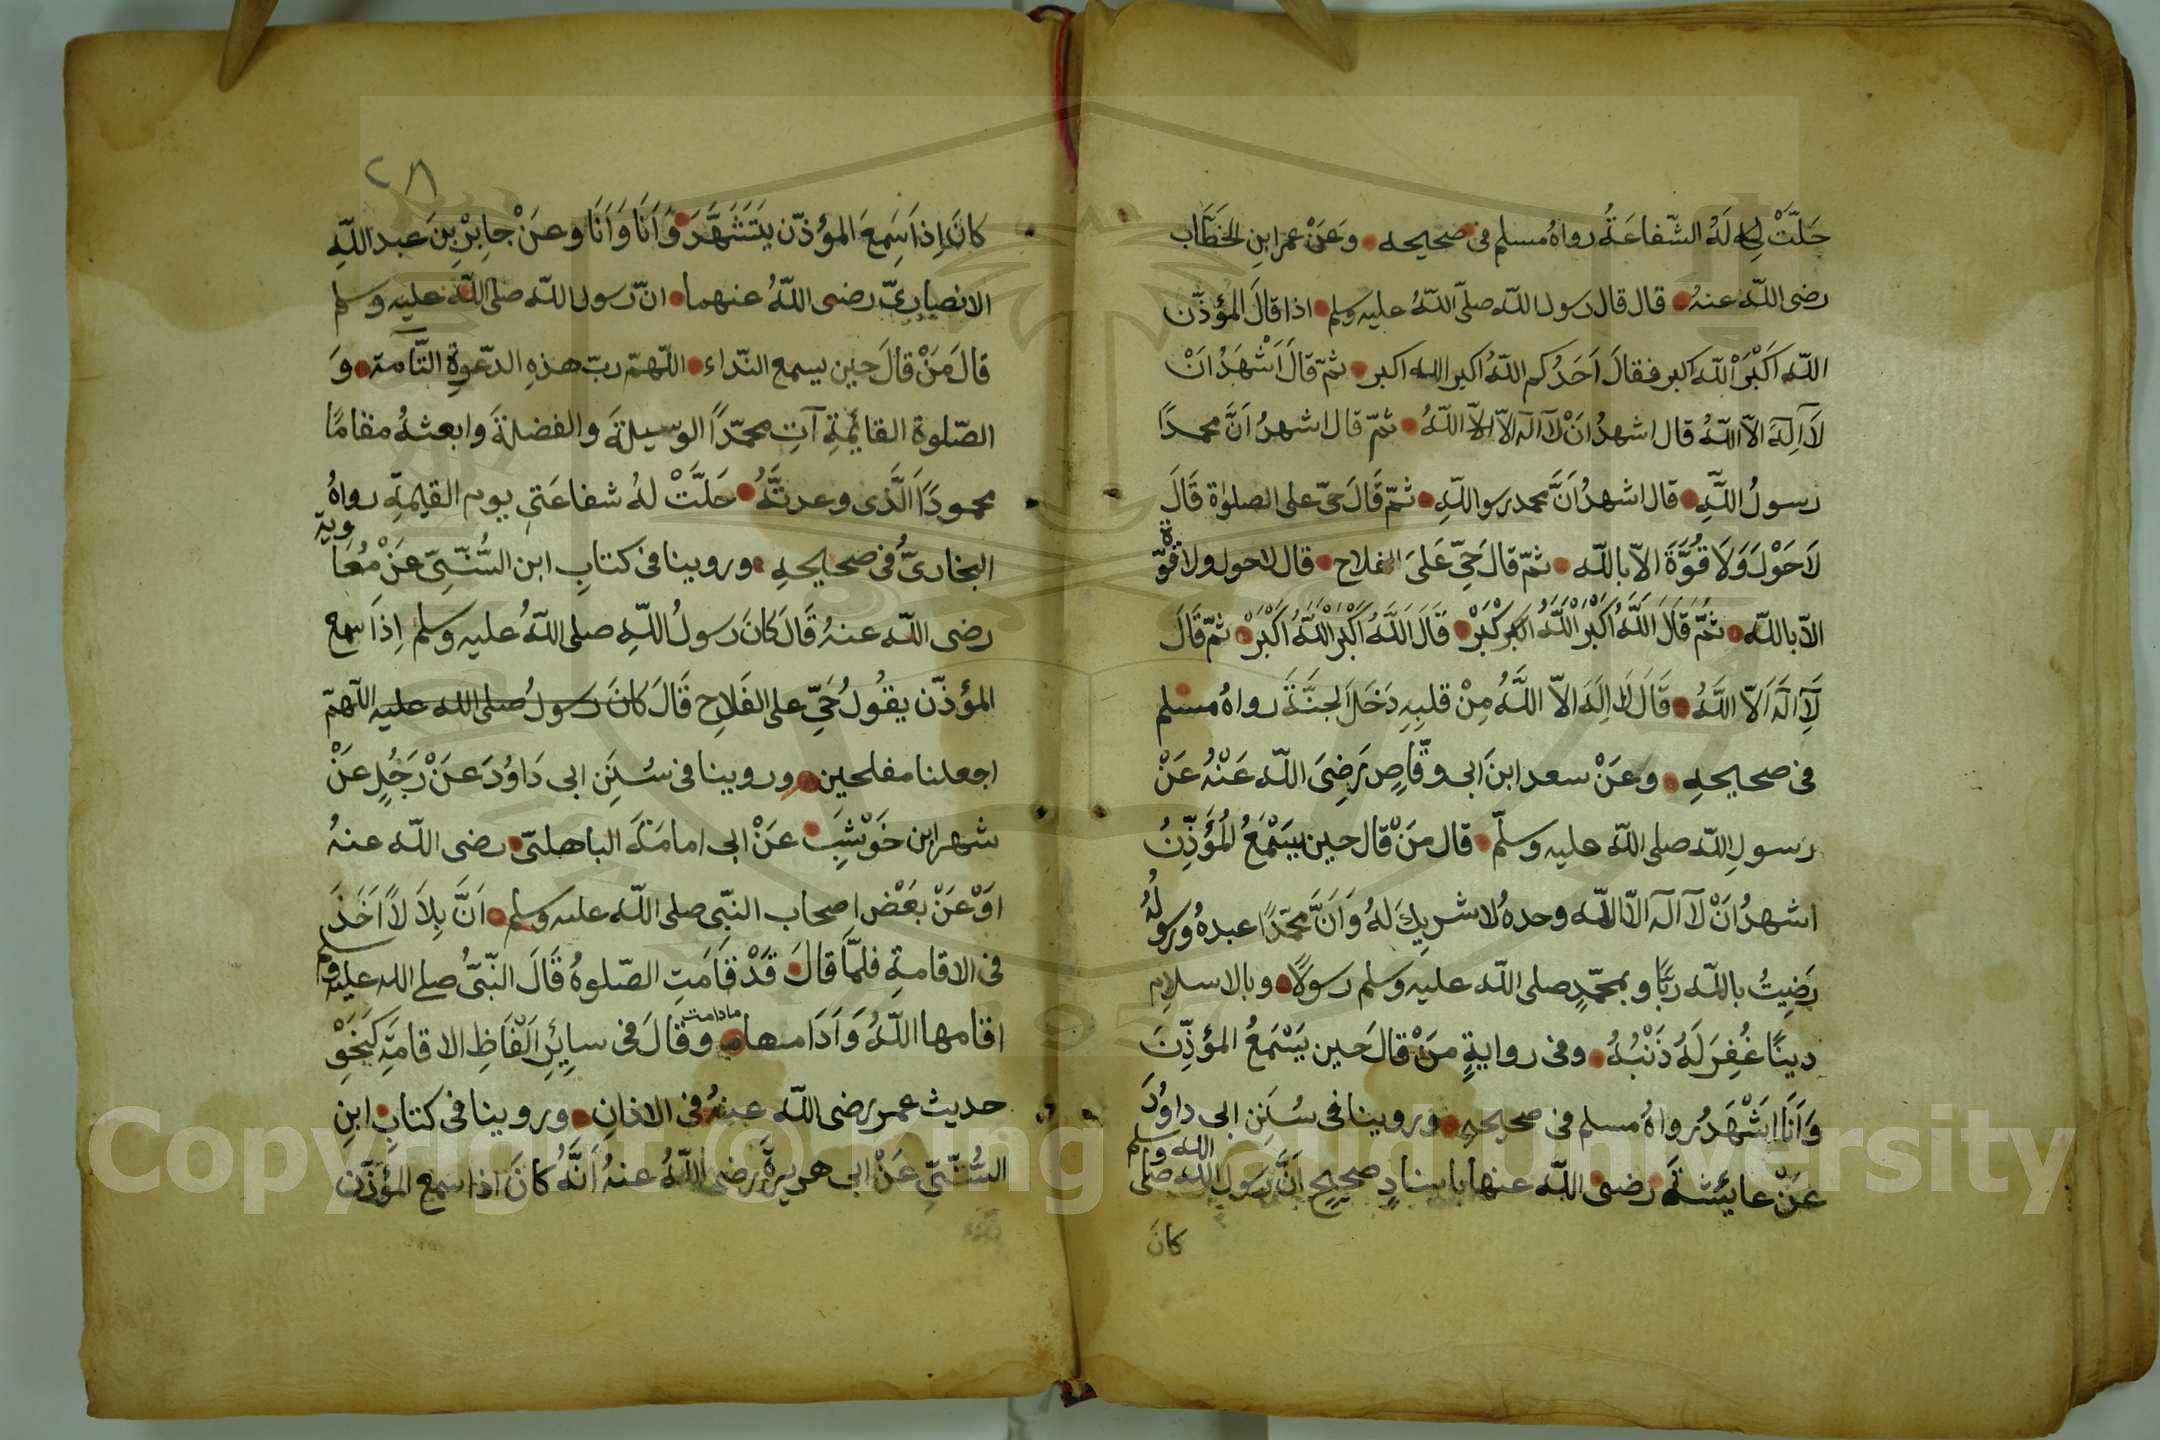 حَلَّتْ لَهُ الشّفاعَةُ رواهُ مسلم فى صحيحه وَعَنْ عمر ابنِ الخطّاب
رضى اللّه عنهُ قال قال رسول اللّه صلّى اللّهُ عليه وسلم اذا قالَ المؤذّن
اللّه اَكْبَرْ اَللّه اكبر فقالَ اَحَدُكم اللّهُ اكبر اللّه اكبر ثمّ قالَ اَشْهَدُ انْ
لآ اِلَهَ الاّ اللّهُ قال اشهدُ انْ لآ اله الاّ اللّهُ ثمّ قال اشهدُ اَنَّ محمدًا
رسولُ اللَّهِ قال اشهدُ اَنَّ محمد رسو اللّهِ ثمّ قَالَ حىّ على الصلوٰة قَالَ
لاَ حَوْلَ وَلَا قُوَّةَ الاّ باللّه ثمّ قالَ حَىِّ عَلَى الفلاح قال لا حول ولا قوّة
الاّ باللّه ثُمَّ قَالَ اَللَّهُ اَكْبَرْ اَللَّهُ اَكْبَرْ قَالَ اَللَّهُ اَكْبَرْ اَللَّهُ اَكْبَرْ ثمّ قَالَ
لَآ اِلَهَ اَلاّ اللَّهُ قَالَ لآ اِلَهَ الاّ اللَّهُ مِنْ قلبِهِ دَخَلَ الجنَّةَ رواهُ مسلم
فى صحيحهِ وَعَنْ سعد ابنَ ابى وقّاصٍ رَضِىَ اللّه عَنْهُ عَنْ
رَسولِ اللّه صلى اللّه عليه وسلّم قال مَنْ قال حين يَسْمَعُ المُؤَذِّنُ
اشهدُ انْ لآ اله الاّ اللّه وحدهُ لا شريكَ لهُ وَاَنَّ محمّدًا عبدهُ ورسولُهُ
رَضِيتُ باللّه ربًّا وبمحمّدٍ صلى اللّه عليه وسلم رسولًا وبالاسلامِ
دينًا غُفِرَ لَهُ ذَنْبُهُ وفى روايةٍ مَنْ قالَ حَين يَسْمَعُ المؤذِّنَ
وَاَنَا اَشْهَدُ رواهُ مسلم فى صحيحهِ وروينا فى سُنَنِ ابى داوُدَ
عَنْ عايئشةَ رضى اللّه عنها باسنادٍ صحيحٍ اَنَّ رَسولَ اللّه صلى اللّه وسلم
كانَ
٢٨
كانَ اِذاَ سَمِعَ المؤذّن يَتَشَهَّدَ وَاَنَا وَاَنَا وعنْ جابِرْ بِنَ عبد اللّهِ
الانصارىّ رضى اللّهُ عنهما انّ رسول اللّه صلى اللّه عليه وسلم
قالَ مَنْ قالَ حين يسمع النّداء اللّهمّ ربّ هذهِ الدّعوةِ التَّآمة وَ
الصّلوة القائمةِ آتِ محمّدًا الوسيلةَ والفضلةَ وابعثهُ مقامًا
محمودًا الَّذى وعدتَّهُ حَلَّتْ لهُ شفاعَتىِ يوم القيمةِ رواهُ
البخارىُّ فى صحيحهِ وروينا فى كتابِ ابن السُّنّىّ عَنْ مُعَاوية
رضى اللّه عنهُ قَالَ كانَ رَسولُ اللّهِ صلى اللّهُ عليه وسلم اِذاَ سمع
المؤذّن يقُولُ حَىِّ على الفَلَاحِ قَالَ كانَ رسولُ صلى اللّه عليه اللّهمّ
اجعلنا مفلحين وروينا فى سُنَنِ ابى دَاوُدَ عَنْ رَجُلٍ عَنْ
شهر ابن خَوْشَبِ عَنْ ابى امامَةَ الباهلىّ رضى اللّه عنهُ
اَوْ عَنْ بَعْض اصحاب النبّى صلى اللّه عليه وسلم اَنَّ بِلاَلاً اَخَذَ
فى الاقامةِ فلمَّا قالَ قَدْ قَامَتِ الصّلوةُ قَالَ النّبىُّ صلے اللّه عليه وسلم
اقامها اللّهُ وَاَدَامها مادامت وقالَ فى سايِئرِ اَلْفَاظِ الاقامَةِ كَنَحْوْ
حديث عمر رضى اللّه عنهُ فى الاذانِ وروينا فى كتابِ ابنِ
السُّنّىِّ عَنْ ابى هريرةَ رضى اللّهُ عنهُ اَنَّهُ كانَ اذا سمع المؤذّن
Copyright © King Saud University